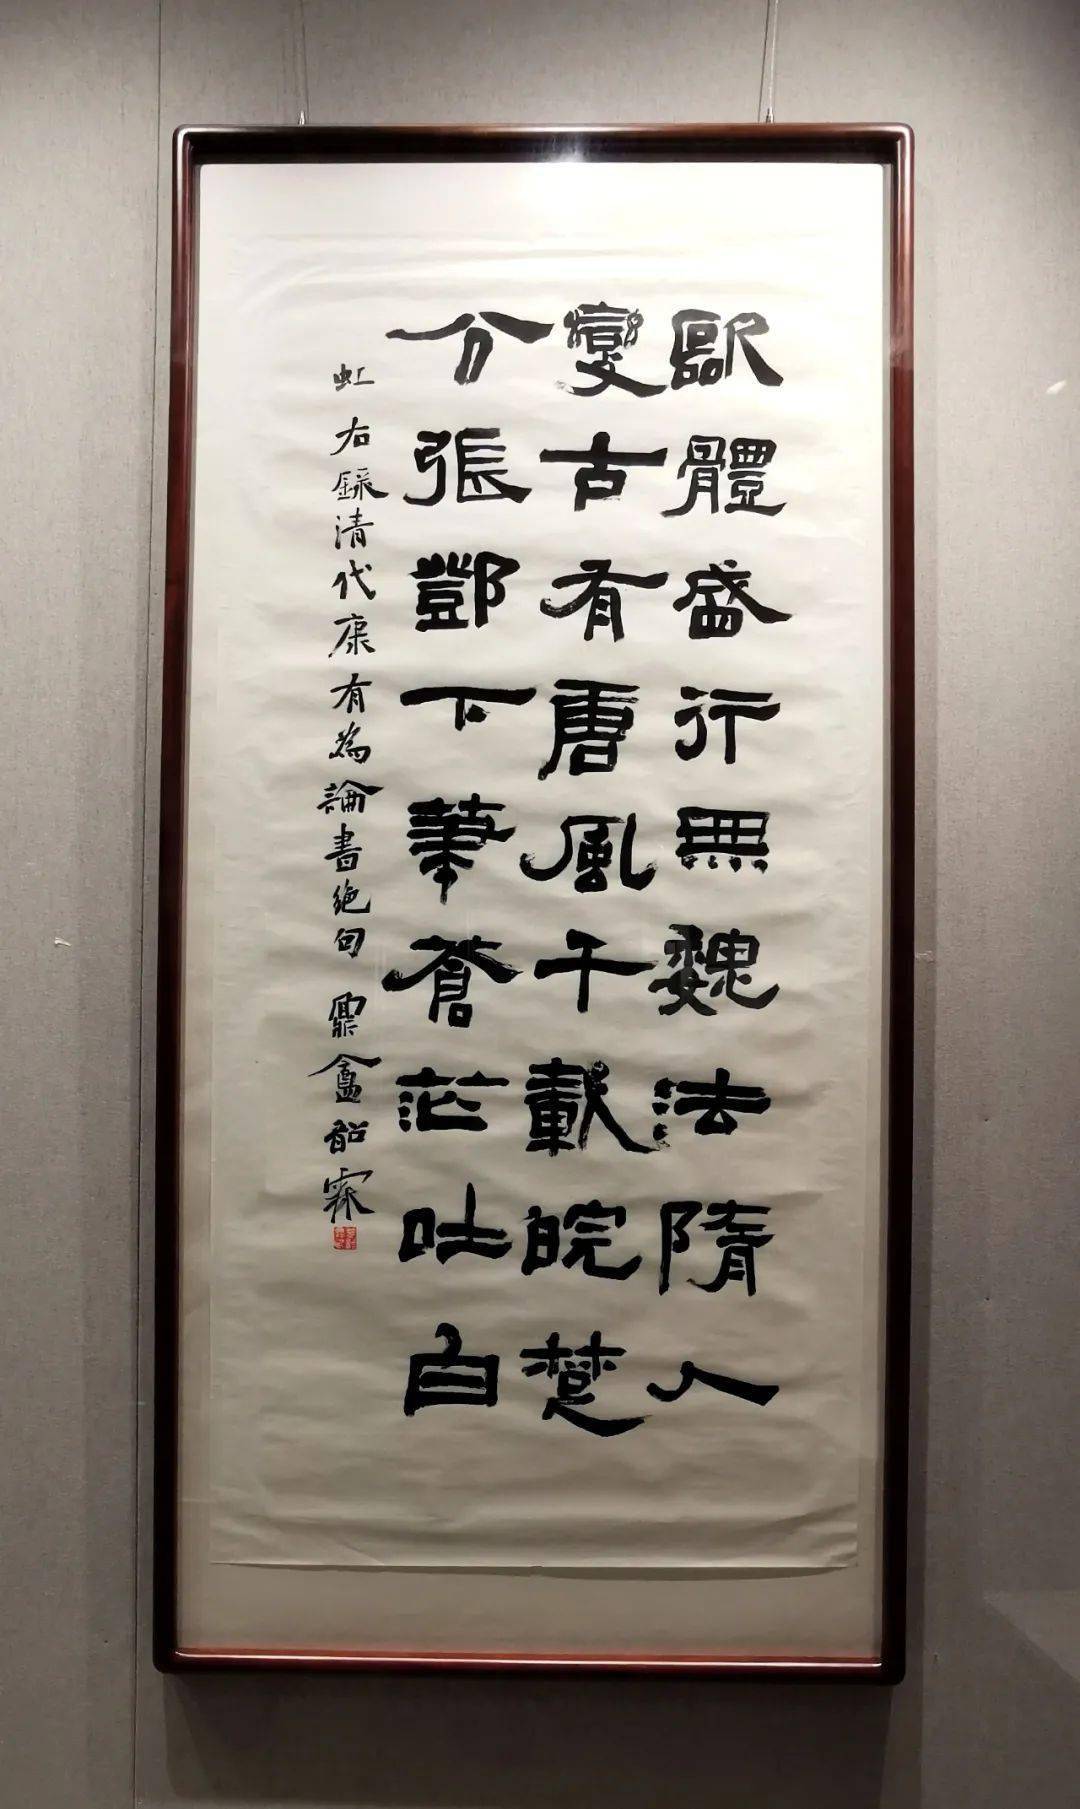 歐體盛行無魏法隋人
變古有唐風千載皖楚
分張鄧下筆蒼茫吐白
虹 右錄清代康有為論書絕句 盦韶